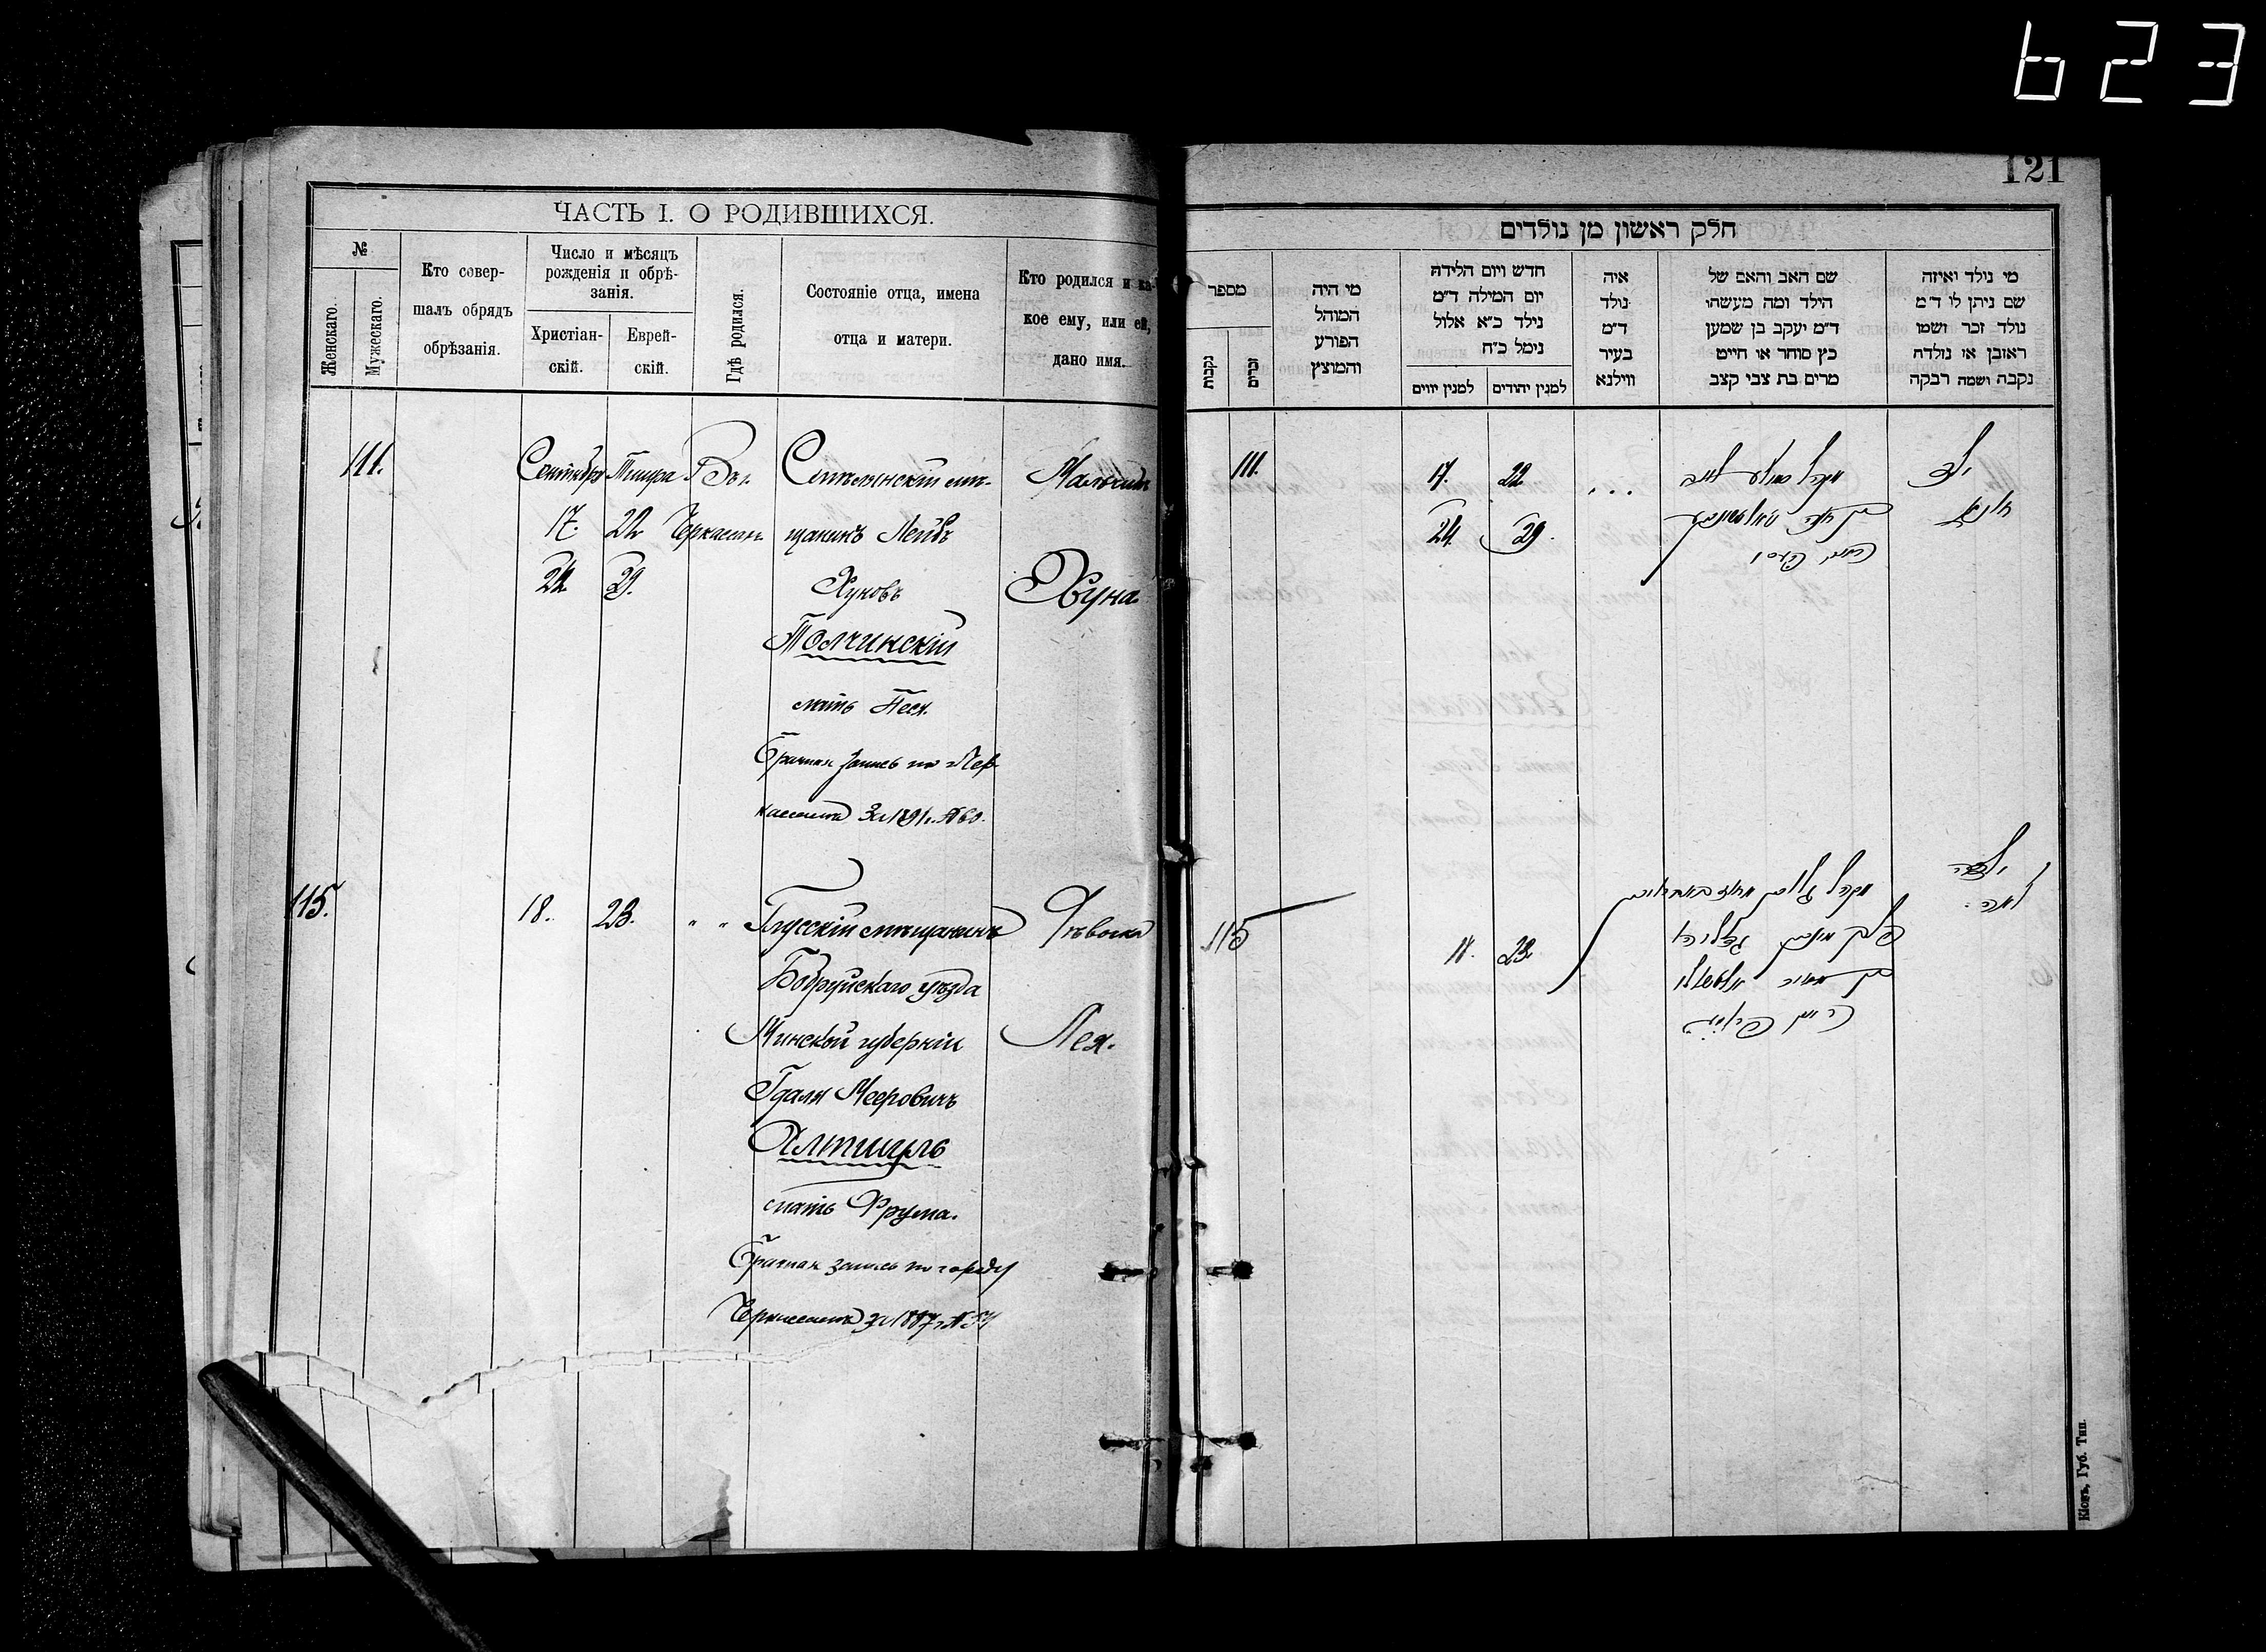 623
121
ЧАСТЬ I. О РОДИВШИХСЯ.
№
Женскаго.
Мужескаго.
Кто совер-
шалъ обрядъ
обрѣзанія.
Число и мѣсяцъ
рожденія и обрѣ-
занія.
Христіан-
скій.
Еврей-
скій.
Гдѣ родился.
Состояніе отца, имена
отца и матери.
Кто родился и ка-
кое ему, или ей,
дано имя.
111. Сентябрь Тишра Въ г. мѣ- Мальчикъ
17. 22 Черкассахъ щанинъ Лейбъ
24. 29. Хуновъ Хуна
Толчинскій
мать Песя.
Брачная запись по Чер-
кассамъ за 1891 г. № 60.
115. 18. 23. " " Глусскій мѣщанинъ Дѣвочка
Бобруйскаго уѣзда
Минской губерніи Лея.
Гдаля Мееровичъ
Алтшуль
мать Фрума.
Брачная запись по городу
Черкассамъ за 1887 г. №
חלק ראשון מן נולדים
מספר
נקבות
זכרים
מי היה
המוהל
הפורע
והמוצץ
חדש ויום הלידה
יום המילה ד״מ
נילד כ״א אלול
נימל כ״ח
למנין יווים
למנין יהודים
איה
נולד
ד״מ
בעיר
ווילנא
שם האב והאם של
הילד ומה מעשהו
ד״מ יעקב בן שמען
כץ סוחר או חייט
מרים בת צבי קצב
מי נילד ואיזה
שם ניתן לו ד״מ
נולד זכר ושמו
ראובן או נולדה
נקבה ושמה רבקה
111. 17. 22 . . . ילד
24. 29.
115 18. 23. ילדה
לאה.
Кіевъ, Губ. Тип.